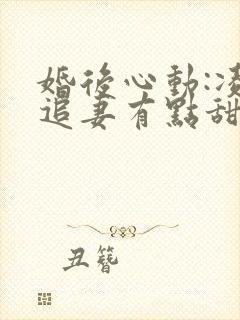 婚後心動:凌
追妻有點甜
丑簪